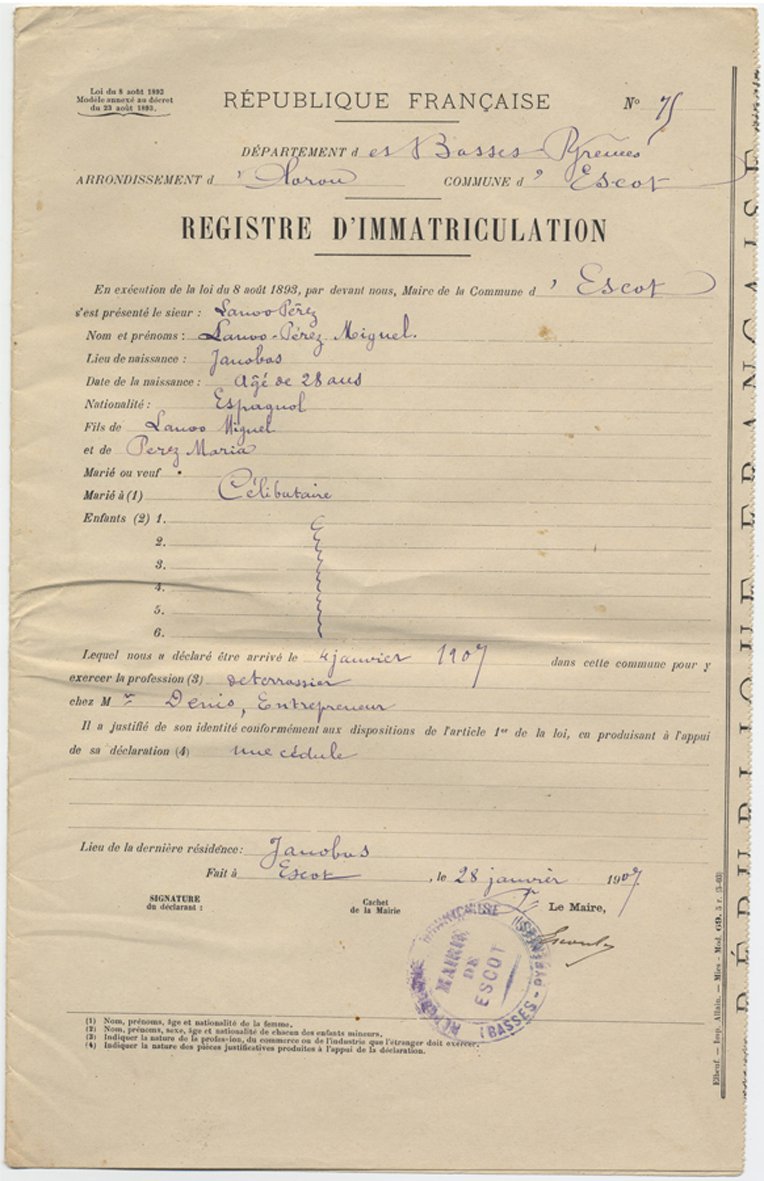 Loi du 8 août 1893
Modèle annexé au décret
du 23 août 1893.
RÉPUBLIQUE FRANÇAISE
N° 75
DÉPARTEMENT d es Basses-Pyrénées
ARRONDISSEMENT d ' Oloron COMMUNE d ' Escot
REGISTRE D'IMMATRICULATION
En exécution de la loi du 8 août 1893, par devant nous, Maire de la Commune d ' Escot
s'est présenté le sieur : Lanoo Pérez
Nom et prénoms : Lanoo-Pérez Miguel.
Lieu de naissance : Janobas
Date de la naissance : Agé de 28 ans
Nationalité : Espagnol
Fils de Lanoo Miguel
et de Perez Maria
Marié ou veuf
Marié à (1) Célibataire
Enfants (2) 1.
2.
3.
4.
5.
6.
Lequel nous a déclaré être arrivé le 4 janvier 1907 dans cette commune pour y
exercer la profession (3) de terrassier
chez M r Denis, Entrepreneur
Il a justifié de son identité conformément aux dispositions de l'article 1er de la loi, en produisant à l'appui
de sa déclaration (4) une cédule
Lieu de la dernière résidence : Janobas
Fait à Escot, le 28 janvier 1907
SIGNATURE
du déclarant :
Cachet
de la Mairie
Le Maire,
RÉPUBLIQUE FRANÇAISE
MAIRIE
DE
ESCOT
(BASSES-PYRÉNÉES)
(1) Nom, prénoms, âge et nationalité de la femme.
(2) Nom, prénoms, sexe, âge et nationalité de chacun des enfants mineurs.
(3) Indiquer la nature de la profession, du commerce ou de l'industrie que l'étranger doit exercer.
(4) Indiquer la nature des pièces justificatives produites à l'appui de la déclaration.
Elbeuf. — Imp. Allain. — Mies - Mod. 69. 5 r. (5-03)
RÉPUBLIQUE FRANÇAISE